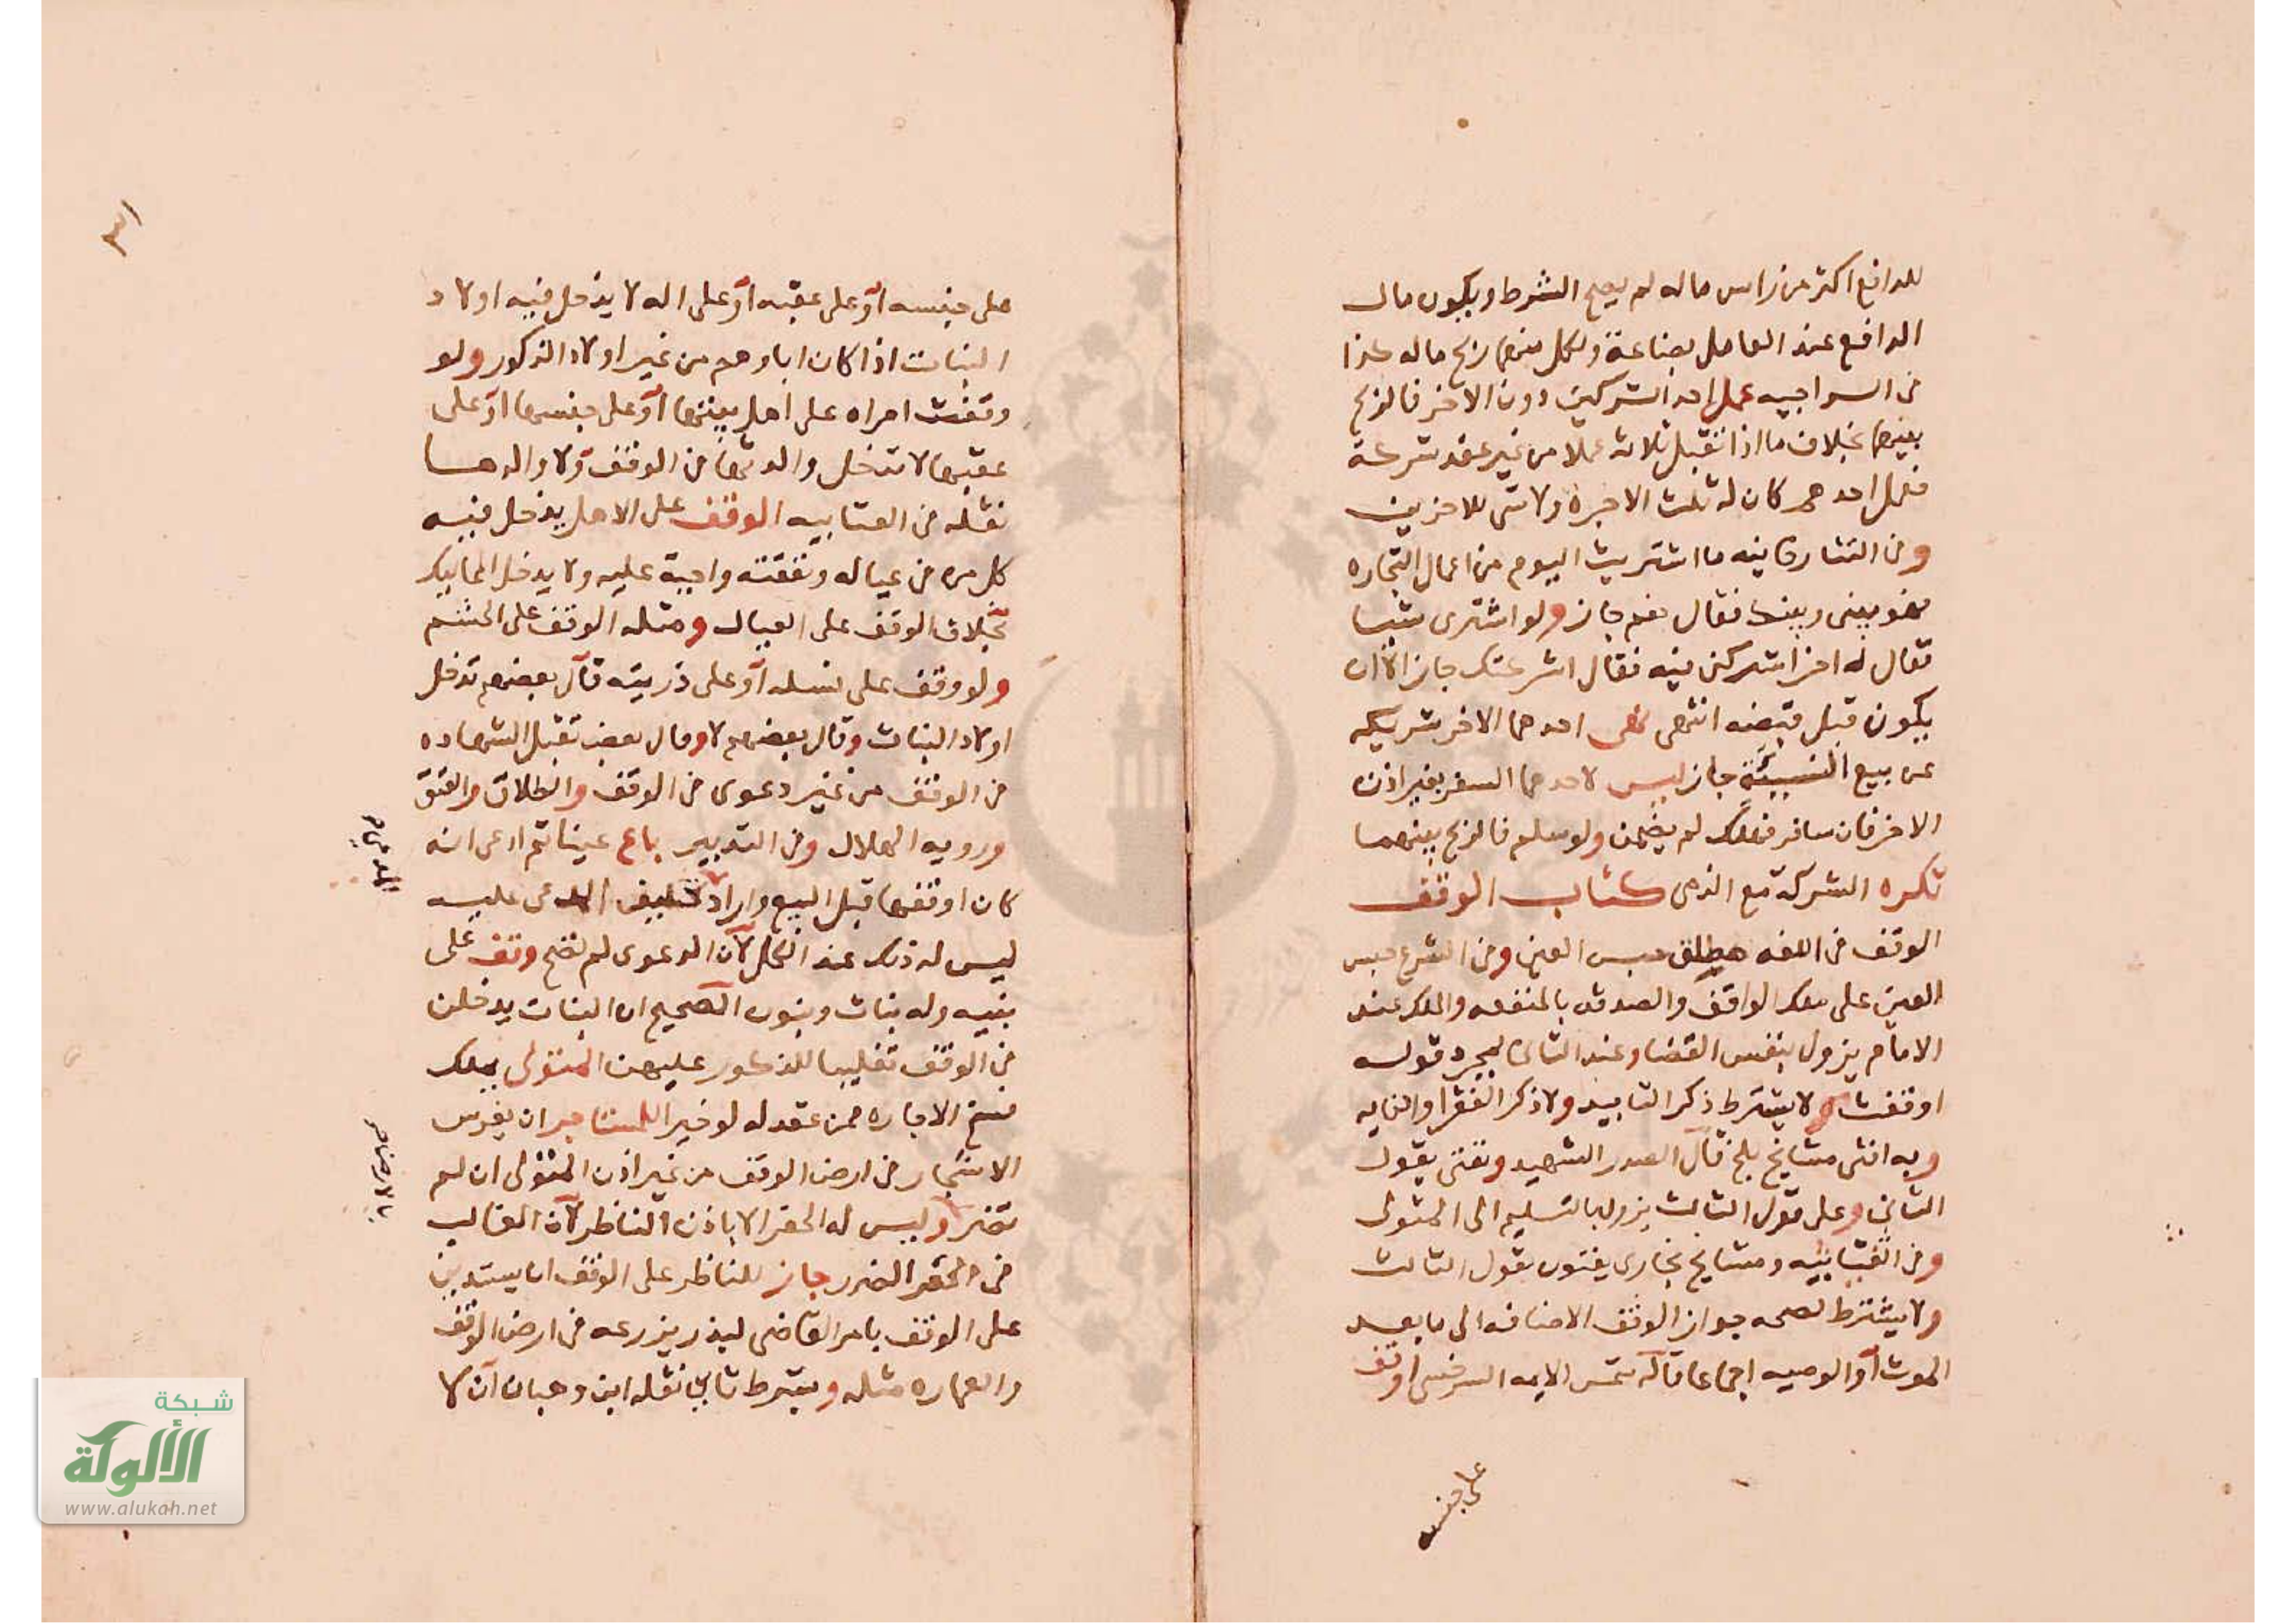 للدافع اكثر من راس ماله لم يصح الشرط ويكون مال
الدافع عند العامل بضاعة ولكل منهما ربح ماله كذا
في السراجيه عمل احد الشركين دون الاخر فالربح
بينهما بخلاف ما اذا تقبل ثلاثه عملا من غير عقد شركة
فعمل احدهم كان له ثلث الاجرة ولا شي للاخرين
وفي التتارخانيه ما اشتريت اليوم من اعمال التجاره
فهو بيني وبينك فقال نعم جاز ولو اشترى شيا
فقال له اخر اشركني فيه فقال اشركتك جاز الا ان
يكون قبل قبضه انتهى نهى احدهما الاخر شريكه
عن بيع النسيئة جاز ليس لاحدهما السفر بغير اذن
الاخر فان سافر فهلك لم يضمن ولو سلم فالربح بينهما
تكره الشركة مع الذمي كتاب الوقف
الوقف في اللغه مطلق حبس العين وفي الشرع حبس
العين على ملك الواقف والصدقه بالمنفعه والملك عند
الامام يزول بنفس القضا وعند الثاني بمجرد قوله
اوقفت ولا يشترط ذكر التابيد ولا ذكر الفقرا والغايه
وبه افتى مشايخ بلخ قال الصدر الشهيد ونفتي بقول
الثاني وعلى قول الثالث يزول بالتسليم الى المتولى
وفي العتابيه ومشايخ بخارى يفتون بقول الثالث
ولا يشترط لصحه جواز الوقف الاضافه الى ما بعد
الموت او الوصيه اجماعا قاله شمس الايمه السرخسي اوقف
على جنسه
على جنسه او على عقبه او على اله لا يدخل فيه اولاد
البنات اذا كان اباوهم من غير اولاد الذكور ولو
وقفت امراه على اهل بيتها او على جنسها او على
عقبها لا تدخل والدتها في الوقف ولا والدها
نقله في العتابيه الوقف على الاهل يدخل فيه
كل من في عياله ونفقته واجبة عليه ولا يدخل المماليك
بخلاف الوقف على العيال ومثله الوقف على الحشم
ولو وقف على نسله او على ذريته قال بعضهم تدخل
اولاد البنات وقال بعضهم لا وقال بعض تقبل الشهاده
في الوقف من غير دعوى في الوقف والطلاق والعتق
ورويه الهلال وفي التدبير باع عينا ثم ادعى انه
كان اوقفها قبل البيع واراد تحليف المدعى عليه
ليس له ذلك عند الكل لان الدعوى لم تصح وقف على
بنيه وله بنات وبنون الصحيح ان البنات يدخلن
في الوقف تغليبا للذكور عليهن المتولي يملك
فسخ الاجاره ممن عقد له لو خيرا للمستاجر ان يغرس
الاشجار في ارض الوقف من غير اذن المتولى ان لم
تضر وليس له الحفر الا باذن الناظر لان الغالب
في الحفر الضرر جاز للناظر على الوقف ان يستدين
على الوقف بامر القاضي لبذر يزرعه في ارض الوقف
والعماره مثله ويشترط ثاني نقله ابن وهبان ان لا
شبكة
الألوكة
www.alukah.net